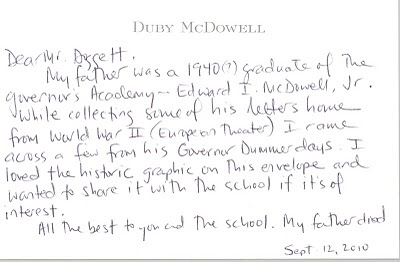 DUBY MCDOWELL
Dear Mr. Doggett.
My father was a 1940(?) graduate of The
governor's Academy – Edward I. McDowell, Jr.
While collecting some of his letters home
from World War II (European Theater) I came
across a few from his Governor Dummer days. I
loved the historic graphic on This envelope and
wanted to share it with The school if it's of
interest.
All the best to you and The school. My father died
Sept. 12, 2010